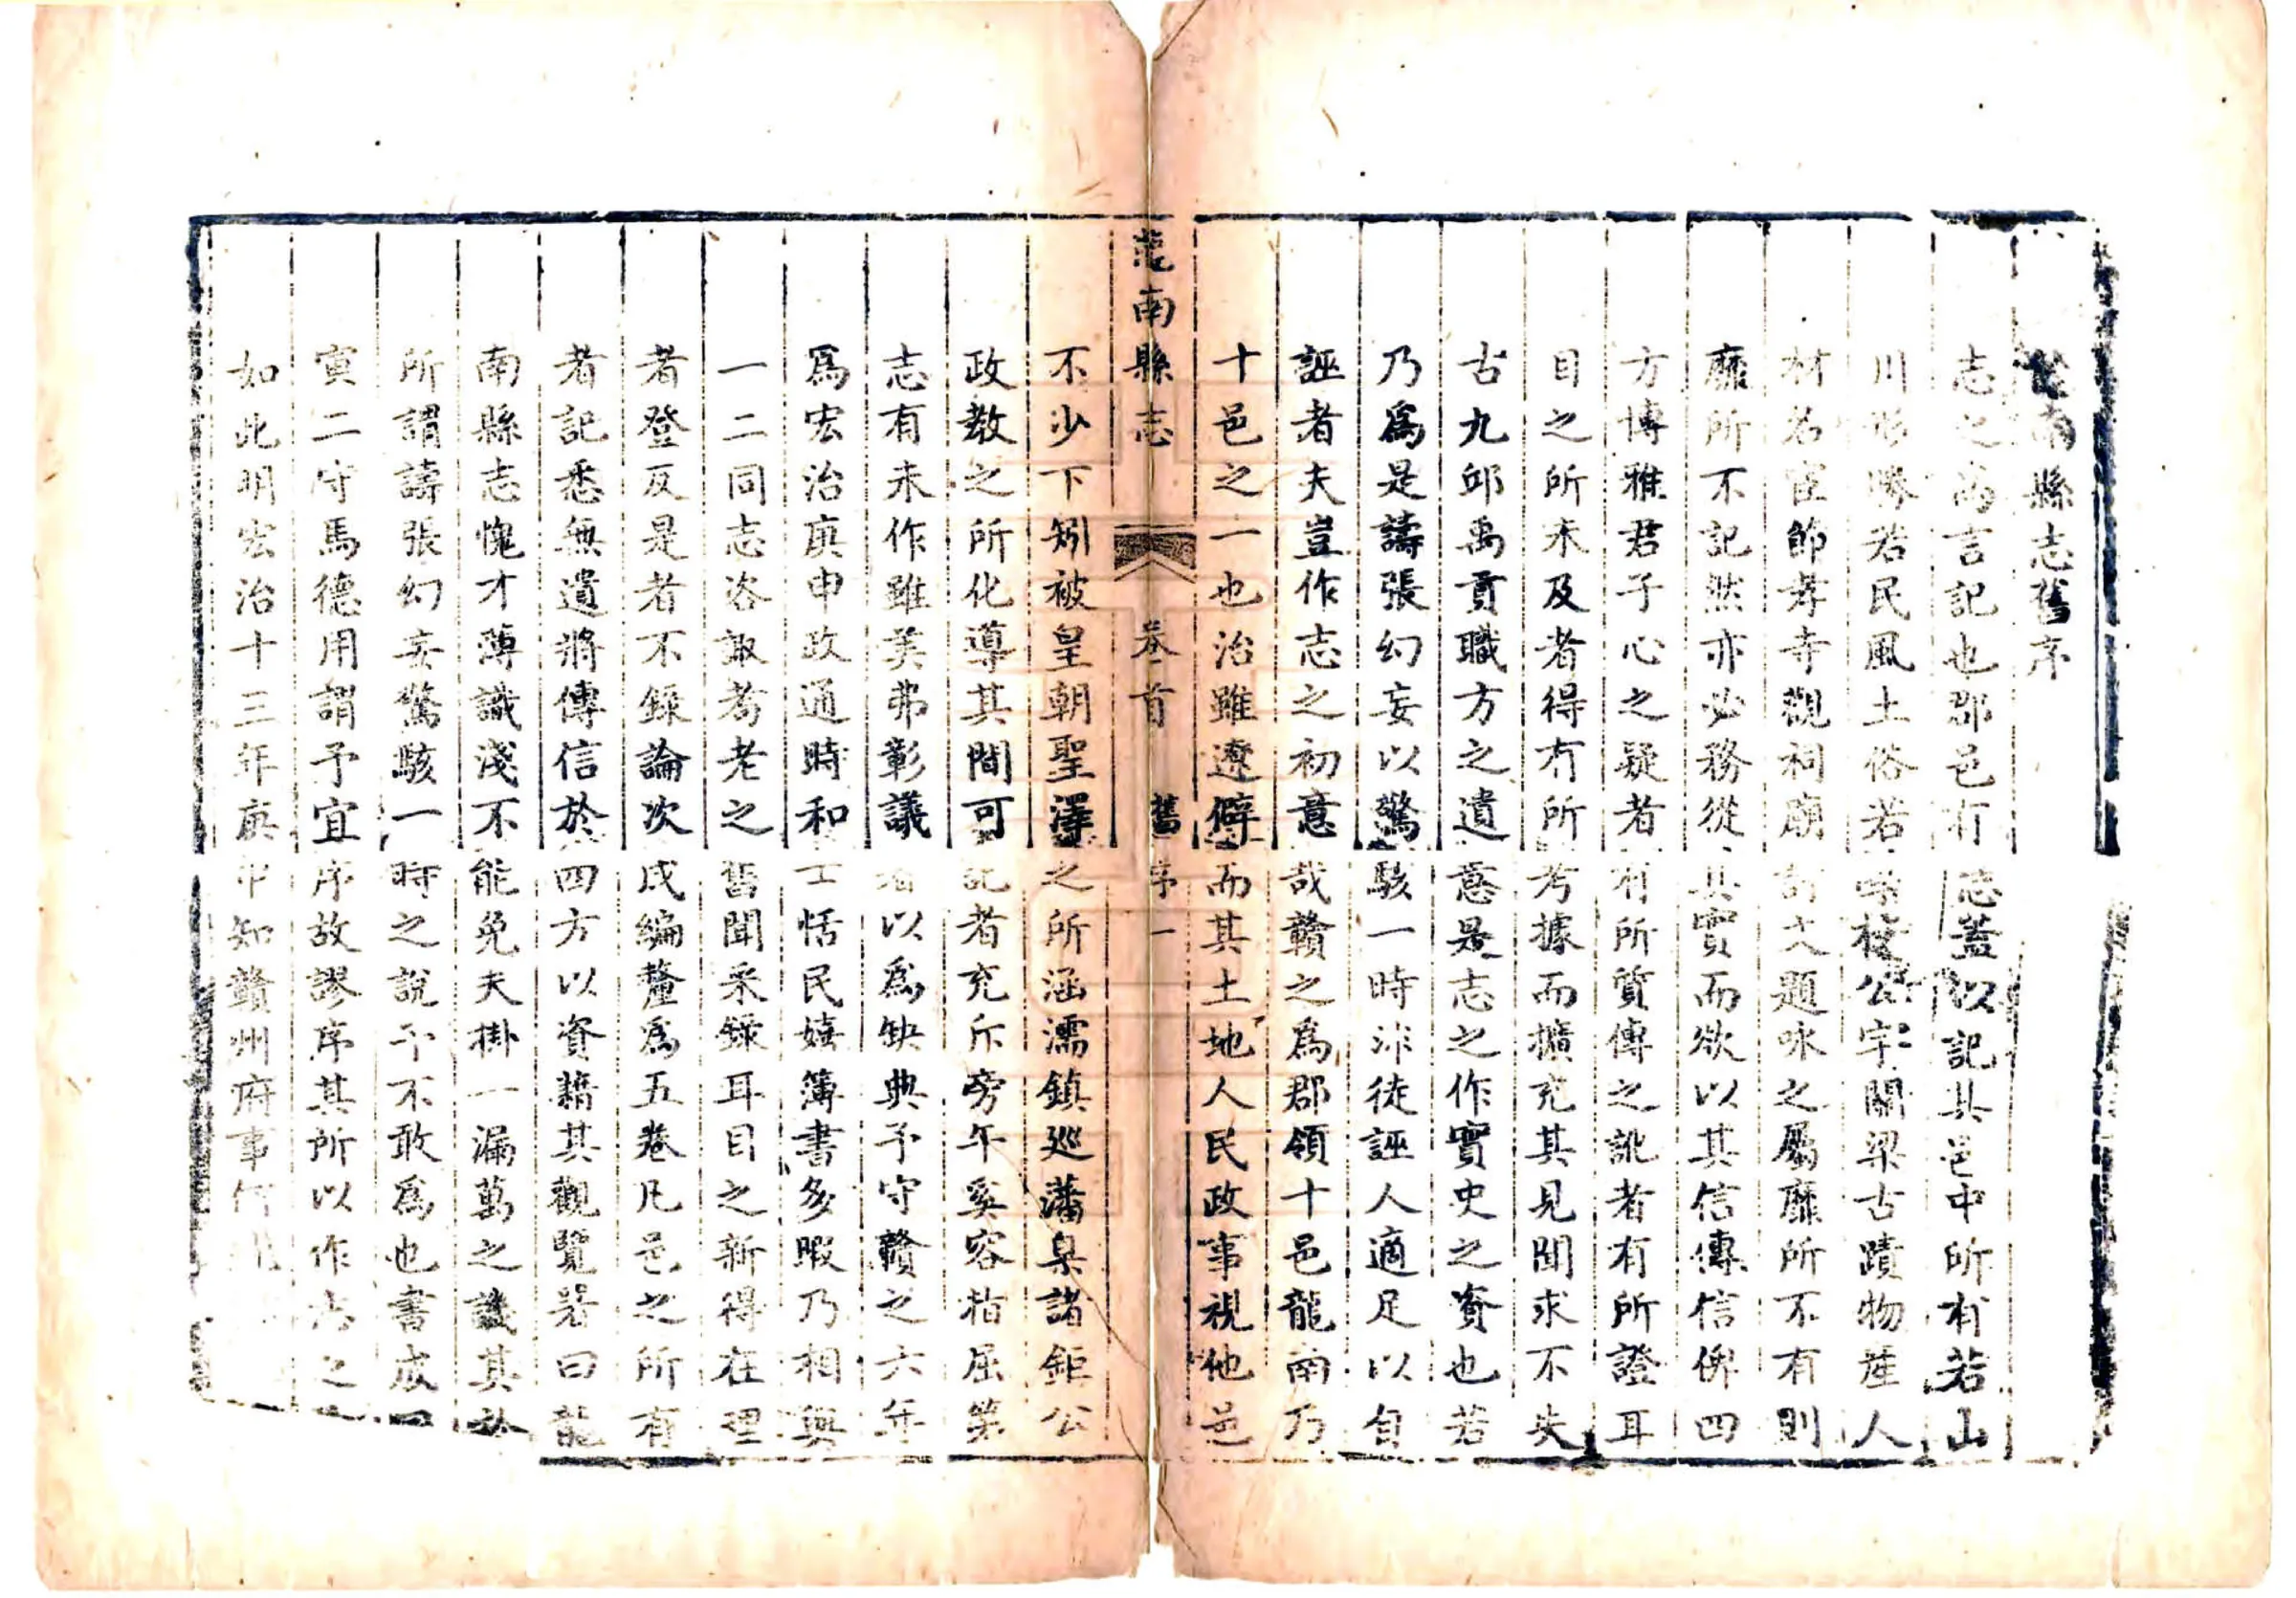 龍南縣志舊序
志之爲言記也郡邑有志蓋以記其邑中所有若山
川形勝若民風土俗若學校公宇關梁古蹟物産人
材名宦節孝寺觀祠廟詩文題咏之屬靡所不有則
靡所不記然亦必務從其實而欲以其信傳信俾四
方博雅君子心之疑者有所質傳之訛者有所證耳
目之所未及者得有所考據而擴充其見聞求不失
古九邱禹貢職方之遺意是志之作實史之資也若
乃爲是譸張幻妄以驚駭一時洋徒誣人適足以自
誣者夫豈作志之初意哉贛之爲郡領十邑龍南乃
十邑之一也治雖遼僻而其土地人民政事視他邑
龍南縣志 卷首 舊序 一
不少下矧被皇朝聖澤之所涵濡鎮廵藩臬諸鉅公
政教之所化導其間可記者充斥旁午奚容指屈第
志有未作雖美弗彰議者以爲缺典予守贛之六年
爲宏治庚申政通時和士恬民嬉簿書多暇乃相與
一二同志咨諏耉老之舊聞采錄耳目之新得在理
者登反是者不錄論次成編釐爲五卷凡邑之所有
者記悉無遺將傳信於四方以資藉其觀覽署曰龍
南縣志愧才薄識淺不能免夫掛一漏萬之譏其於
所謂譸張幻妄驚駭一時之說予不敢爲也書成同
寅二守馬德用謂予宜序故謬序其所以作志之
如此明宏治十三年庚申知贛州府事何